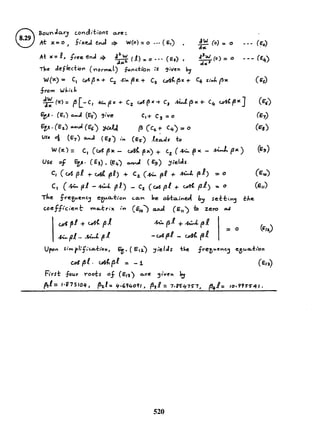 8.29
Boundary conditions are:
At x = 0, fixed end ⇒ W(0) = 0 --- (E₁), dW/dx (0) = 0 --- (E₂)
At x = l, free end ⇒ d²W/dx² (l) = 0 --- (E₃), d³W/dx³ (l) = 0 --- (E₄)
The deflection (normal) function is given by
W(x) = C₁ cos βx + C₂ sin βx + C₃ cosh βx + C₄ sinh βx (E₅)
from which
dW/dx (x) = β [-C₁ sin βx + C₂ cos βx + C₃ sinh βx + C₄ cosh βx] (E₆)
Eqs. (E₁) and (E₅) give C₁ + C₃ = 0 (E₇)
Eqs. (E₂) and (E₆) yield β (C₂ + C₄) = 0 (E₈)
Use of (E₇) and (E₈) in (E₅) leads to
W(x) = C₁ (cos βx - cosh βx) + C₂ (sin βx - sinh βx) (E₉)
Use of Eqs. (E₃), (E₄) and (E₉) yields
C₁ (cos βl + cosh βl) + C₂ (sin βl + sinh βl) = 0 (E₁₀)
C₁ (sin βl - sinh βl) - C₂ (cos βl + cosh βl) = 0 (E₁₁)
The frequency equation can be obtained by setting the
coefficient matrix in (E₁₀) and (E₁₁) to zero as
| cos βl + cosh βl sin βl + sinh βl |
| sin βl - sinh βl -cos βl - cosh βl | = 0 (E₁₂)
Upon simplification, Eq. (E₁₂) yields the frequency equation
cos βl · cosh βl = -1 (E₁₃)
First four roots of (E₁₃) are given by
β₁l = 1.875104, β₂l = 4.694091, β₃l = 7.854757, β₄l = 10.995541.
520